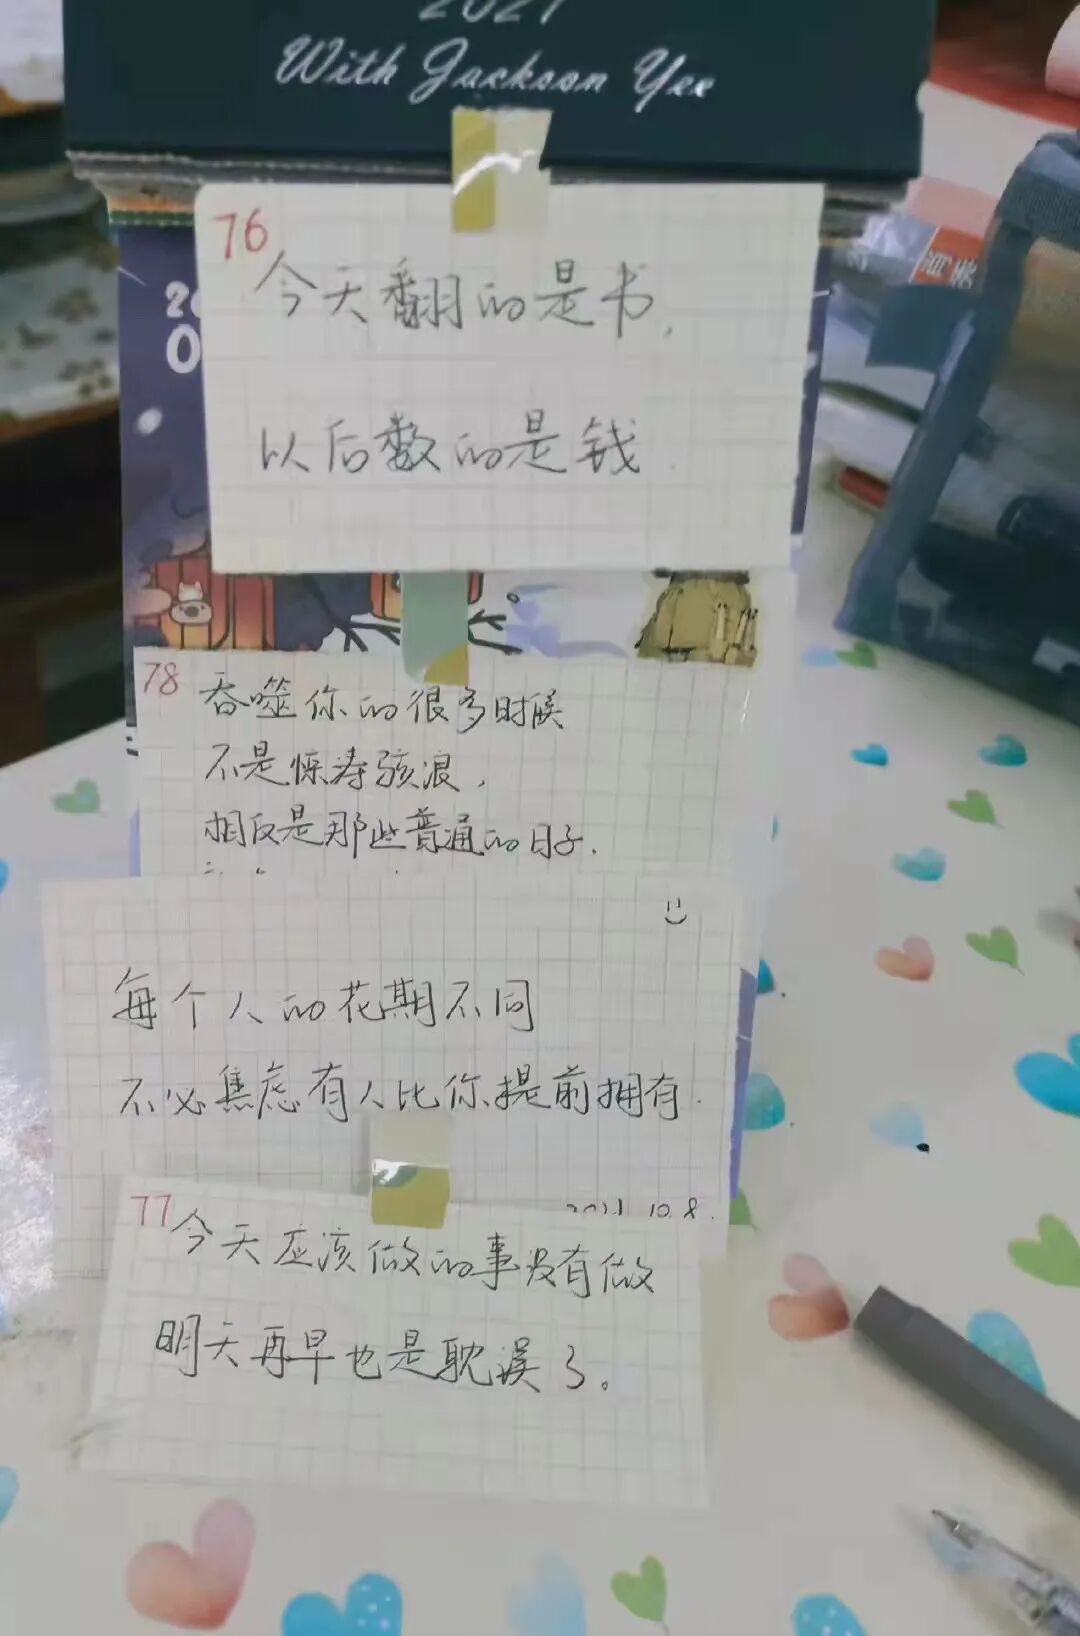 2021
With Jackson Yee
76
今天翻的是书,
以后数的是钱.
78
吞噬你的很多时候
不是惊涛骇浪,
相反是那些普通的日子.
每个人的花期不同
不必焦虑有人比你提前拥有.
2021.10.8.
77
今天应该做的事没有做
明天再早也是耽误了。